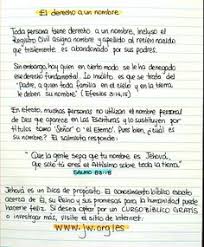 El derecho a un nombre
Toda persona tiene derecho a un nombre, incluso el
Registro Civil asigna nombre y apellido al recién nacido
que tristemente es abandonado por sus padres.
Sin embargo, hay quien en cierto modo se le ha denegado
ese derecho fundamental. Lo insólito es que se trata del
"Padre, a quien toda familia en el cielo y en la tierra
le deben su nombre" (Efesios 3:14,15)
En efecto, muchas personas no utilizan el nombre personal
de Dios que aparece en las Escrituras y lo sustituyen por
títulos como "Señor" o "el Eterno". Pues bien, ¿cuál es
su nombre? El salmista responde:
"Que la gente sepa que tu nombre es Jehová,
que sólo tú eres el Altísimo sobre toda la tierra"
SALMO 83:18
Jehová es un Dios de propósito. El conocimiento bíblico exacto
acerca de Él, su Reino y sus promesas para la humanidad puede
hacerte feliz. Si desea optar por un CURSO BÍBLICO GRATIS
o investigar más, visite el sitio de internet:
www.jw.org/es